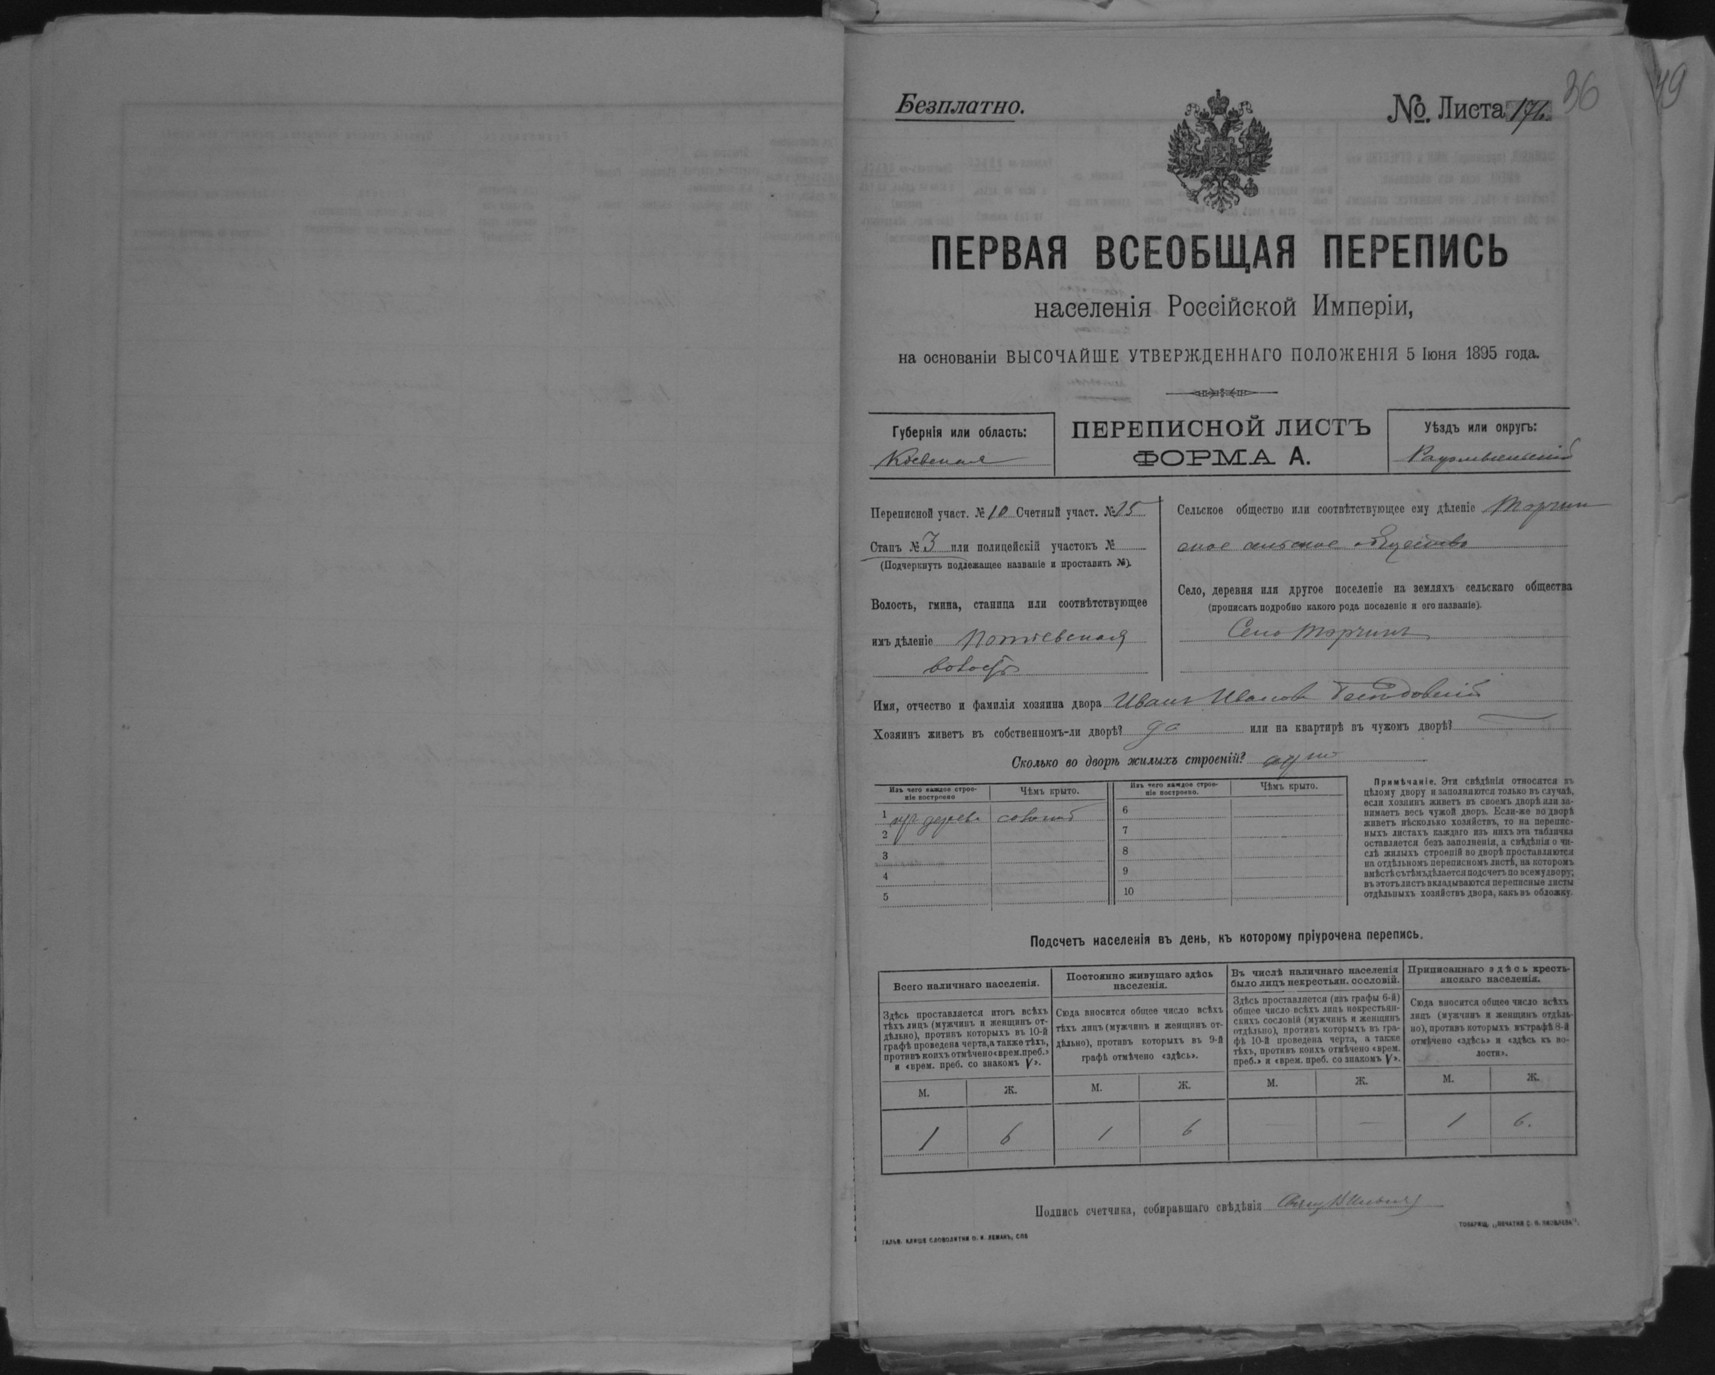 36 49
Безплатно.
№. Листа
ПЕРВАЯ ВСЕОБЩАЯ ПЕРЕПИСЬ
населенія Россійской Имперіи,
на основаніи ВЫСОЧАЙШЕ УТВЕРЖДЕННАГО ПОЛОЖЕНІЯ 5 Іюня 1895 года.
Губернія или область:
Кіевская
ПЕРЕПИСНОЙ ЛИСТЪ
ФОРМА А.
Уѣздъ или округъ:
Радомысльскій
Переписной участ. № 10 Счетный участ. № 15
Станъ № 3 или полицейскій участокъ №
(Подчеркнуть подлежащее названіе и проставить №).
Волость, гмина, станица или соотвѣтствующее
ихъ дѣленіе Потіевская
волость
Сельское общество или соотвѣтствующее ему дѣленіе Торчин
ское сельское общество
Село, деревня или другое поселеніе на земляхъ сельскаго общества
(прописать подробно какого рода поселеніе и его названіе).
Село Торчинъ
Имя, отчество и фамилія хозяина двора Иванъ Ивановъ
Хозяинъ живетъ въ собственномъ-ли дворѣ? да или на квартирѣ въ чужомъ дворѣ? —
Сколько во дворѣ жилыхъ строеній? одно
Изъ чего каждое строе-
ніе построено
Чѣмъ крыто.
1 изъ дерева соломой
2
3
4
5
Изъ чего каждое строе-
ніе построено.
Чѣмъ крыто.
6
7
8
9
10
Примѣчаніе. Эти свѣдѣнія относятся къ
цѣлому двору и заполняются только въ случаѣ,
если хозяинъ живетъ въ своемъ дворѣ или за-
нимаетъ весь чужой дворъ. Если-же во дворѣ
живетъ нѣсколько хозяйствъ, то на перепис-
ныхъ листахъ каждаго изъ нихъ эта табличка
оставляется безъ заполненія, а свѣдѣнія о чи-
слѣ жилыхъ строеній во дворѣ проставляются
на отдѣльномъ переписномъ листѣ, на которомъ
вмѣстѣ съ тѣмъ дѣлается подсчетъ по всему двору;
въ этотъ листъ вкладываются переписные листы
отдѣльныхъ хозяйствъ двора, какъ въ обложку.
Подсчетъ населенія въ день, къ которому пріурочена перепись.
Всего наличнаго населенія.
Здѣсь проставляется итогъ всѣхъ
тѣхъ лицъ (мужчинъ и женщинъ от-
дѣльно), противъ которыхъ въ 10-й
графѣ проведена черта, а также тѣхъ,
противъ коихъ отмѣчено «врем. преб.»
и «врем. преб. со знакомъ V».
Постоянно живущаго здѣсь
населенія.
Сюда вносится общее число всѣхъ
тѣхъ лицъ (мужчинъ и женщинъ от-
дѣльно), противъ которыхъ въ 9-й
графѣ отмѣчено «здѣсь».
Въ числѣ наличнаго населенія
было лицъ некрестьян. сословій.
Здѣсь проставляется (изъ графы 6-й)
общее число всѣхъ лицъ некрестьян-
скихъ сословій (мужчинъ и женщинъ
отдѣльно), противъ которыхъ въ гра-
фѣ 10-й проведена черта, а также
тѣхъ, противъ коихъ отмѣчено «врем.
преб.» и «врем. преб. со знакомъ V».
Приписаннаго здѣсь кресть-
янскаго населенія.
Сюда вносится общее число всѣхъ
лицъ (мужчинъ и женщинъ отдѣль-
но), противъ которыхъ въ графѣ 8-й
отмѣчено «здѣсь» и «здѣсь къ во-
лости».
М. Ж. М. Ж. М. Ж. М. Ж.
1 6 1 6 — — 1 6.
Подпись счетчика, собиравшаго свѣдѣнія
ГАЛЬВ. КЛИШЕ СЛОВОЛИТНИ О. И. ЛЕМАНЪ, СПБ
ТОВАРИЩ. „ПЕЧАТНЯ С. П. ЯКОВЛЕВА".